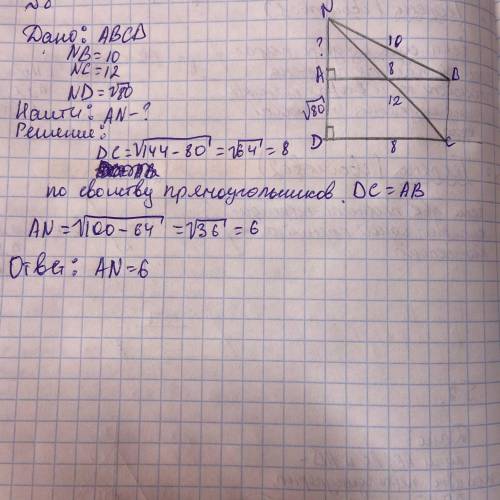 Дано: ABCD
NB=10
NC=12
ND=√80
Найти: AN-?
Решение:
DC=√144-80=√64=8
по свойству прямоугольников. DC=AB
AN=√100-64=√36=6
Ответ: AN=6
N
?
10
A
8
B
12
√80
D
8
C